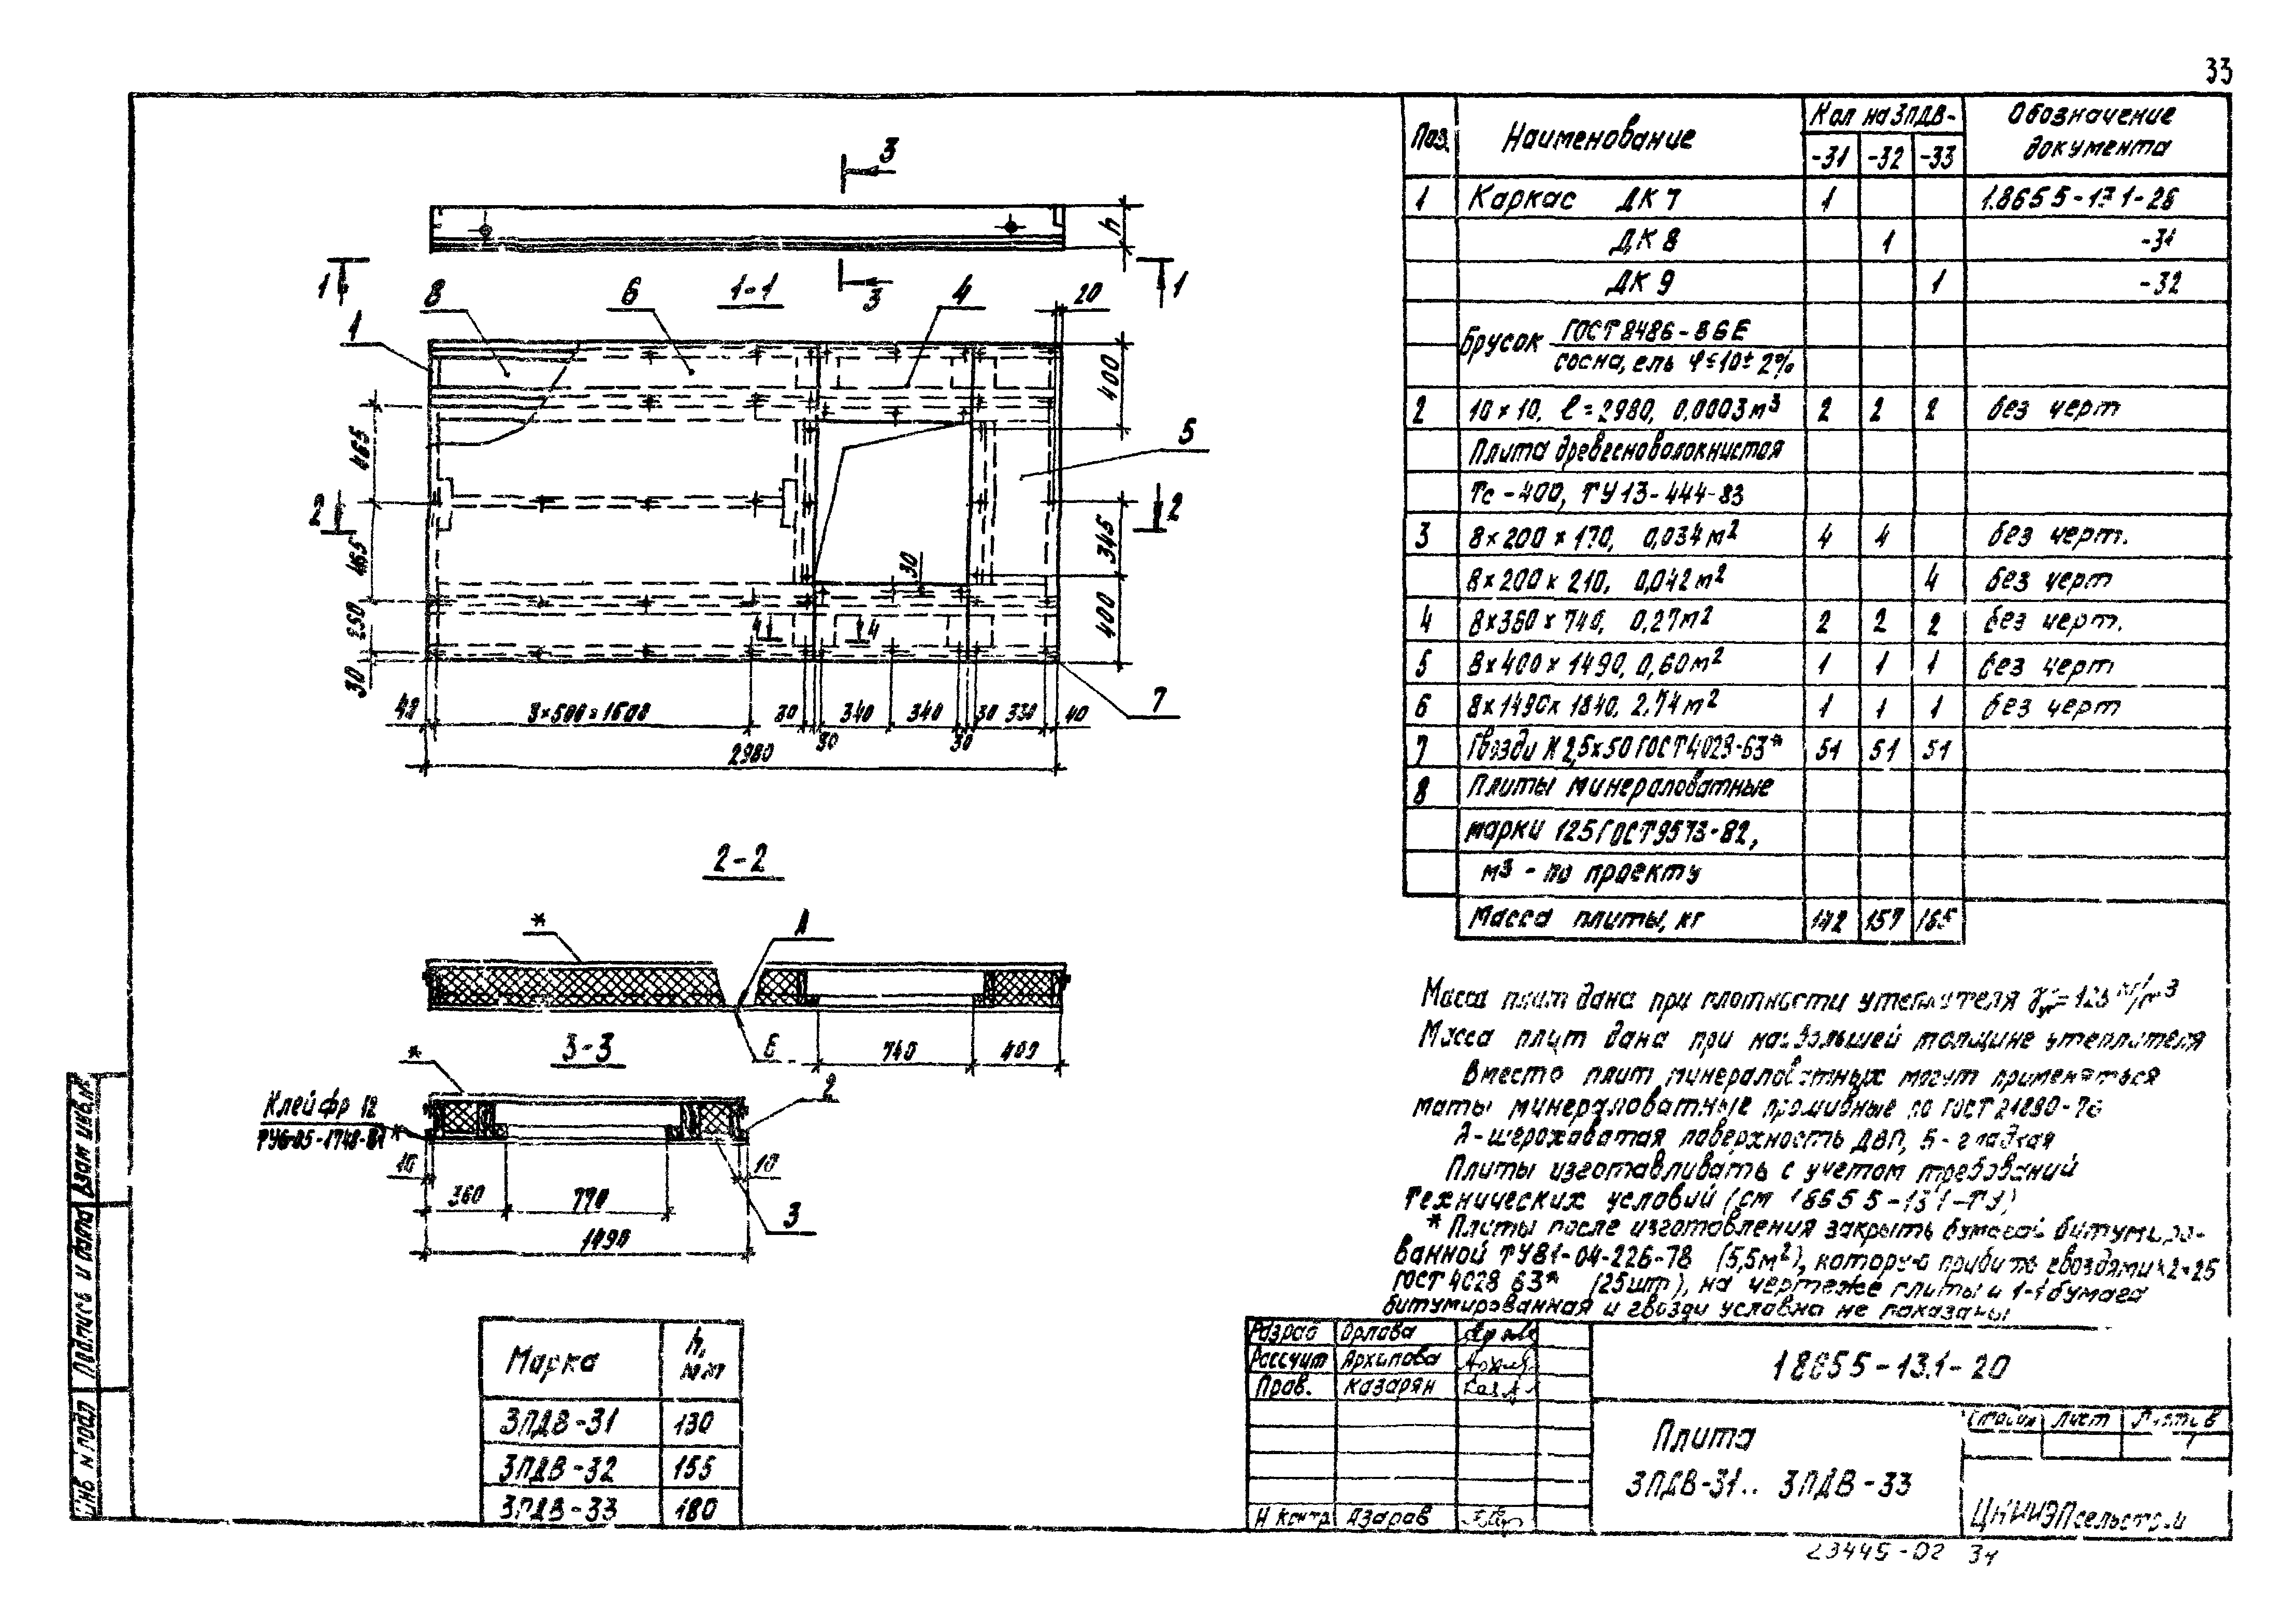 33
3
h
1
1-1
3
1
8
6
4
20
1
400
465
5
2
2
465
345
30
250
4
4
400
30
7
40
3×500=1500
80
340
340
30
330
40
30
30
2980
2-2
*
А
Б
740
400
3-3
*
Клей фр 12
ТУ6-05-1748-81
2
10
10
360
770
3
1490
Марка
h, мм
3ПДВ-31
130
3ПДВ-32
155
3ПДВ-33
180
Поз.
Наименование
Кол на 3ПДВ-
-31
-32
-33
Обозначение
документа
1
Каркас ДК 7
1
1.865 5-13 1-26
ДК 8
1
-31
ДК 9
1
-32
Брусок
ГОСТ 8486-86Е
сосна, ель φ≤10±2%
2
10×10, ℓ=2980, 0,0003м³
2
2
2
без черт
Плита древесноволокнистая
Тс-400, ТУ13-444-83
3
8×200×170, 0,034м²
4
4
без черт.
8×200×210, 0,042м²
4
без черт
4
8×360×740, 0,27м²
2
2
2
без черт.
5
8×400×1490, 0,60м²
1
1
1
без черт
6
8×1490×1840, 2,74м²
1
1
1
без черт
7
Гвозди К 2,5×50 ГОСТ 4028-63*
51
51
51
8
Плиты минераловатные
марки 125 ГОСТ 9573-82,
м³ - по проекту
Масса плиты, кг
142
157
165
Масса плит дана при плотности утеплителя γ =125 кг/м³
Масса плит дана при наибольшей толщине утеплителя
Вместо плит минераловатных могут применяться
маты минераловатные прошивные по ГОСТ 21880-76
А-шероховатая поверхность ДВП, Б-гладкая
Плиты изготавливать с учетом требований
технических условий (см 1865 5-13 1-ТУ)
* Плиты после изготовления закрыть бумагой битумиро-
ванной ТУ81-04-226-78 (5,5м²), которую прибить гвоздями К2×25
ГОСТ 4028 63* (25шт), на чертеже плиты и 1-1 бумага
битумированная и гвозди условно не показаны
Разраб
Орлова
Рассчит
Архипова
Пров.
Казарян
Н контр
Азаров
1 865 5-13.1-20
Плита
3ПДВ-31.. 3ПДВ-33
Стадия
Лист
Листов
1
ЦНИИЭПсельстрой
Инв № подл
Подпись и дата
Взам инв.№
23445-02 34